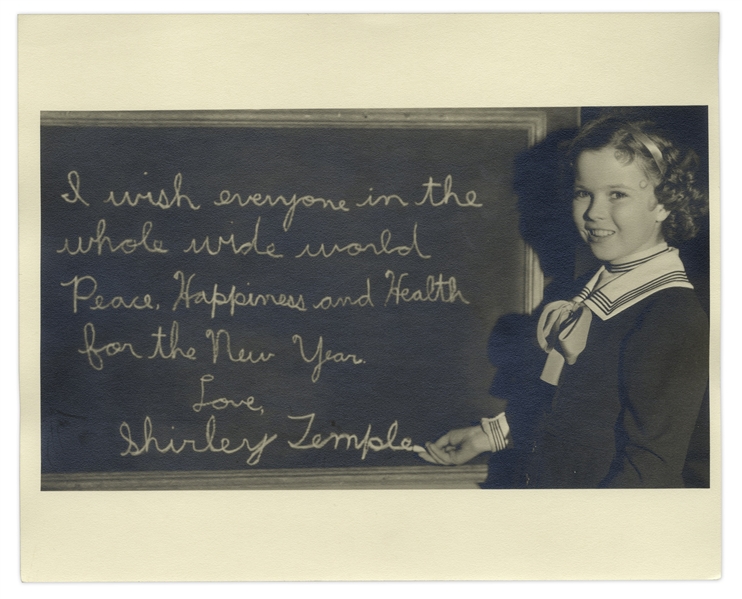 I wish everyone in the
whole wide world
Peace, Happiness and Health
for the New Year.
Love,
Shirley Temple